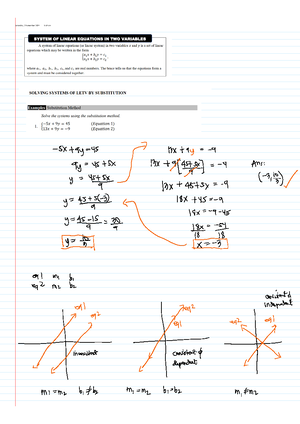 SYSTEM OF LINEAR EQUATIONS IN TWO VARIABLES
A system of linear equations (or linear system) in two variables x and y is a set of linear
equations which may be written in the form
{a₁x + b₁y = c₁
{a₂x + b₂y = c₂
where a₁, a₂, b₁, b₂, c₁ and c₂ are real numbers. The brace tells us that the equations form a
system and must be considered together.
SOLVING SYSTEMS OF LETV BY SUBSTITUTION
Examples Substitution Method
Solve the systems using the substitution method.
1. {-5x + 9y = 45 (Equation 1)
{13x + 9y = -9 (Equation 2)
-5x + 9y = 45
9y = 45 + 5x
y = 45+5x / 9
y = 45+5(-3) / 9
y = 45-15 / 9 = 30/9
13x + 9y = -9
13x + 9[45+5x / 9] = -9
13x + 45 + 5x = -9
18x + 45 = -9
18x = -9 - 45
18x / 18 = -54 / 18
x = -3
Ans:
eq 1 m₁ b₁
eq 2 m₂ b₂
eq 1
eq 2
inconsistent
m₁ = m₂ b₁ ≠ b₂
eq 1
eq 2
consistent &
dependent
m₁ = m₂ b₁ = b₂
consistent &
independent
eq 1
eq 2
m₁ ≠ m₂